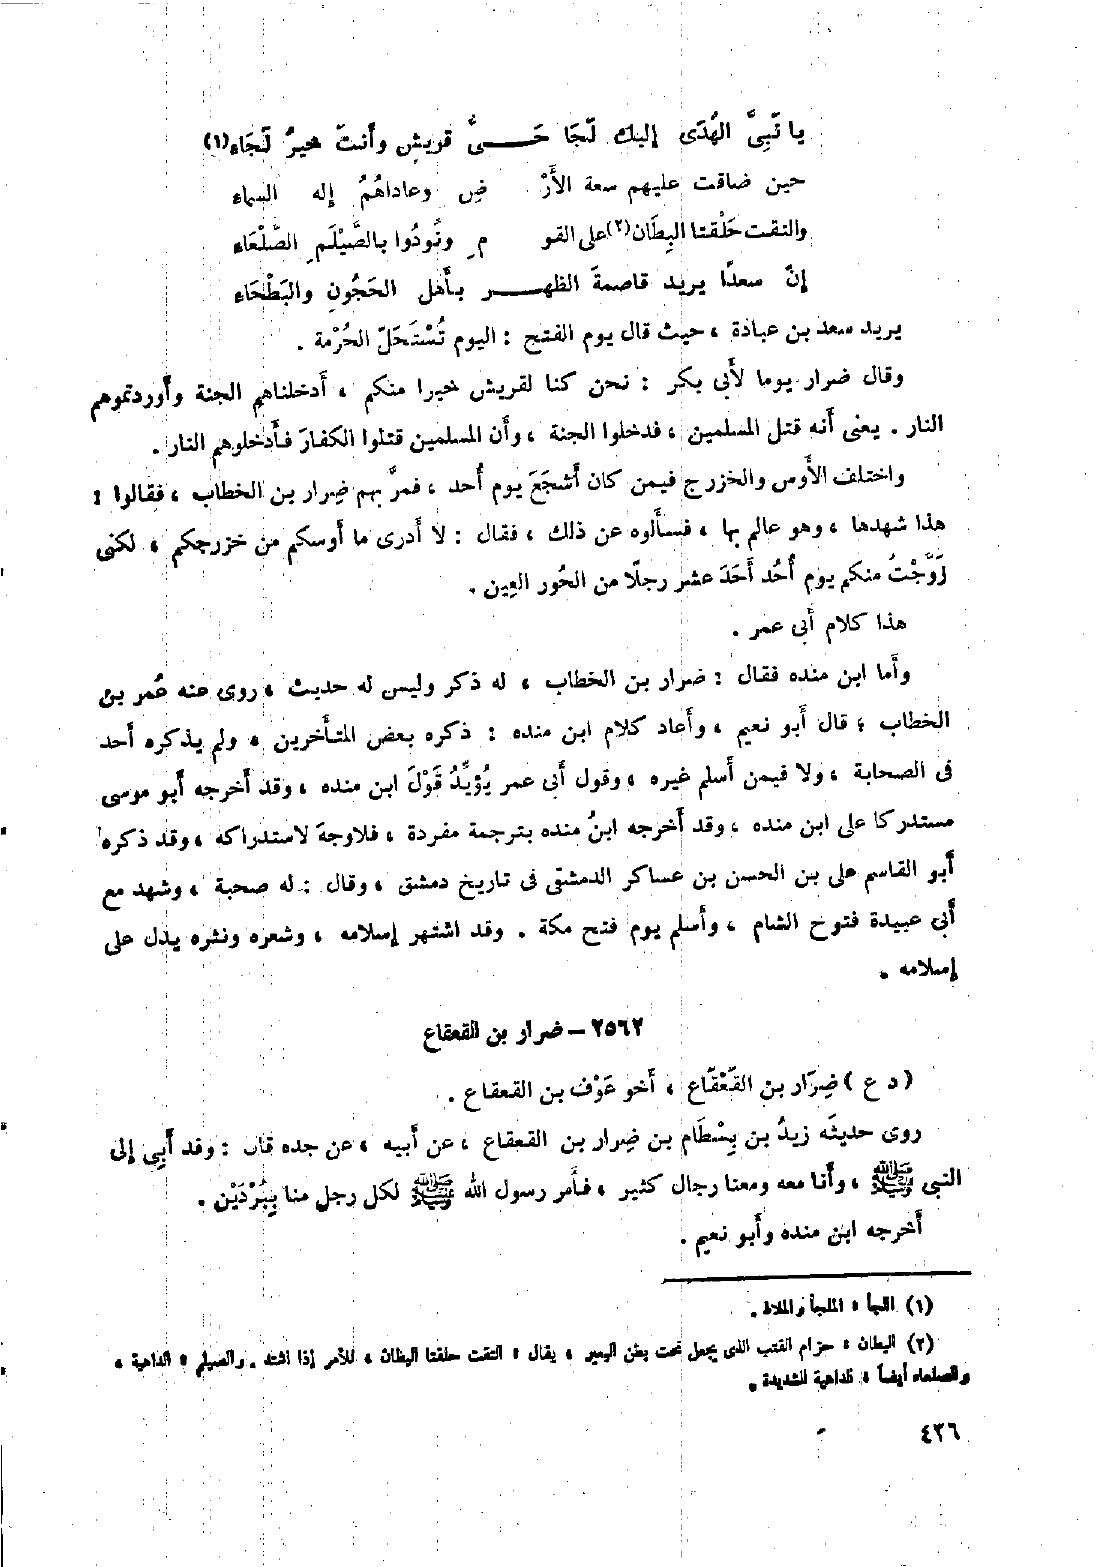 يا نَبِيَّ الهُدَى إليك لَجَا حَــــيُّ قريشٍ وأنتَ خيرُ لَجَاءِ(١)
حين ضاقت عليهم سعة الأَرْ ضِ وعاداهُمُ إله السماء
والتقت حَلْقتا البِطَان(٢)على القو مِ ونُودُوا بالصَّيْلَمِ الصَّلْعَاءِ
إنّ سعدًا يريد قاصمةَ الظهــــر بأهل الحَجُونِ والبَطْحَاءِ
يريد سعد بن عبادة ، حيث قال يوم الفتح : اليوم تُسْتَحَلّ الحُرْمة .
وقال ضرار يوما لأبى بكر : نحن كنا لقريش خيرا منكم ، أدخلناهم الجنة وأوردتموهم
النار . يعنى أنه قتل المسلمين ، فدخلوا الجنة ، وأن المسلمين قتلوا الكفارَ فأدخلوهم النار .
واختلف الأوس والخزرج فيمن كان أشجَعَ يوم أُحد ، فمرَّ بهم ضِرار بن الخطاب ، فقالوا :
هذا شهدها ، وهو عالم بها ، فسألوه عن ذلك ، فقال : لا أدرى ما أوسكم من خزرجكم ، لكنى
زَوَّجْتُ منكم يوم أُحُد أَحَدَ عشر رجلًا من الحُور العِين .
هذا كلام أبى عمر .
وأما ابن منده فقال : ضرار بن الخطاب ، له ذكر وليس له حديث ، روى عنه عُمر بن
الخطاب ؛ قال أبو نعيم ، وأعاد كلام ابن منده : ذكره بعض المتأخرين ، ولم يذكره أحد
فى الصحابة ، ولا فيمن أسلم غيره ، وقول أبى عمر يُؤيِّدُ قَوْلَ ابن منده ، وقد أخرجه أبو موسى
مستدركا على ابن منده ، وقد أخرجه ابنُ منده بترجمة مفردة ، فلاوجهَ لاستدراكه ، وقد ذكره
أبو القاسم على بن الحسن بن عساكر الدمشقى فى تاريخ دمشق ، وقال : له صحبة ، وشهد مع
أبى عبيدة فتوح الشام ، وأسلم يوم فتح مكة . وقد اشتهر إسلامه ، وشعره ونثره يدل على
إسلامه .
٢٥٦٢ – ضرار بن القعقاع
( د ع ) ضِرَار بن القَعْقَاع ، أخو عَوْف بن القعقاع .
روى حديثَه زيدُ بن بِسْطَام بن ضِرار بن القعقاع ، عن أبيه ، عن جده قال : وفد أبِى إلى
النبى ﷺ ، وأنا معه ومعنا رجال كثير ، فأمر رسول الله ﷺ لكل رجل منا بِبُرْدَيْن .
أخرجه ابن منده وأبو نعيم .
(١) اللجأ : الملجأ والملاذ .
(٢) البطان : حزام القتب الذى يجعل تحت بطن البعير ، يقال : التقت حلقتا البطان ، للأمر إذا اشتد . والصيلم : الداهية ،
والصلعاء أيضاً : الداهية الشديدة .
٤٣٦